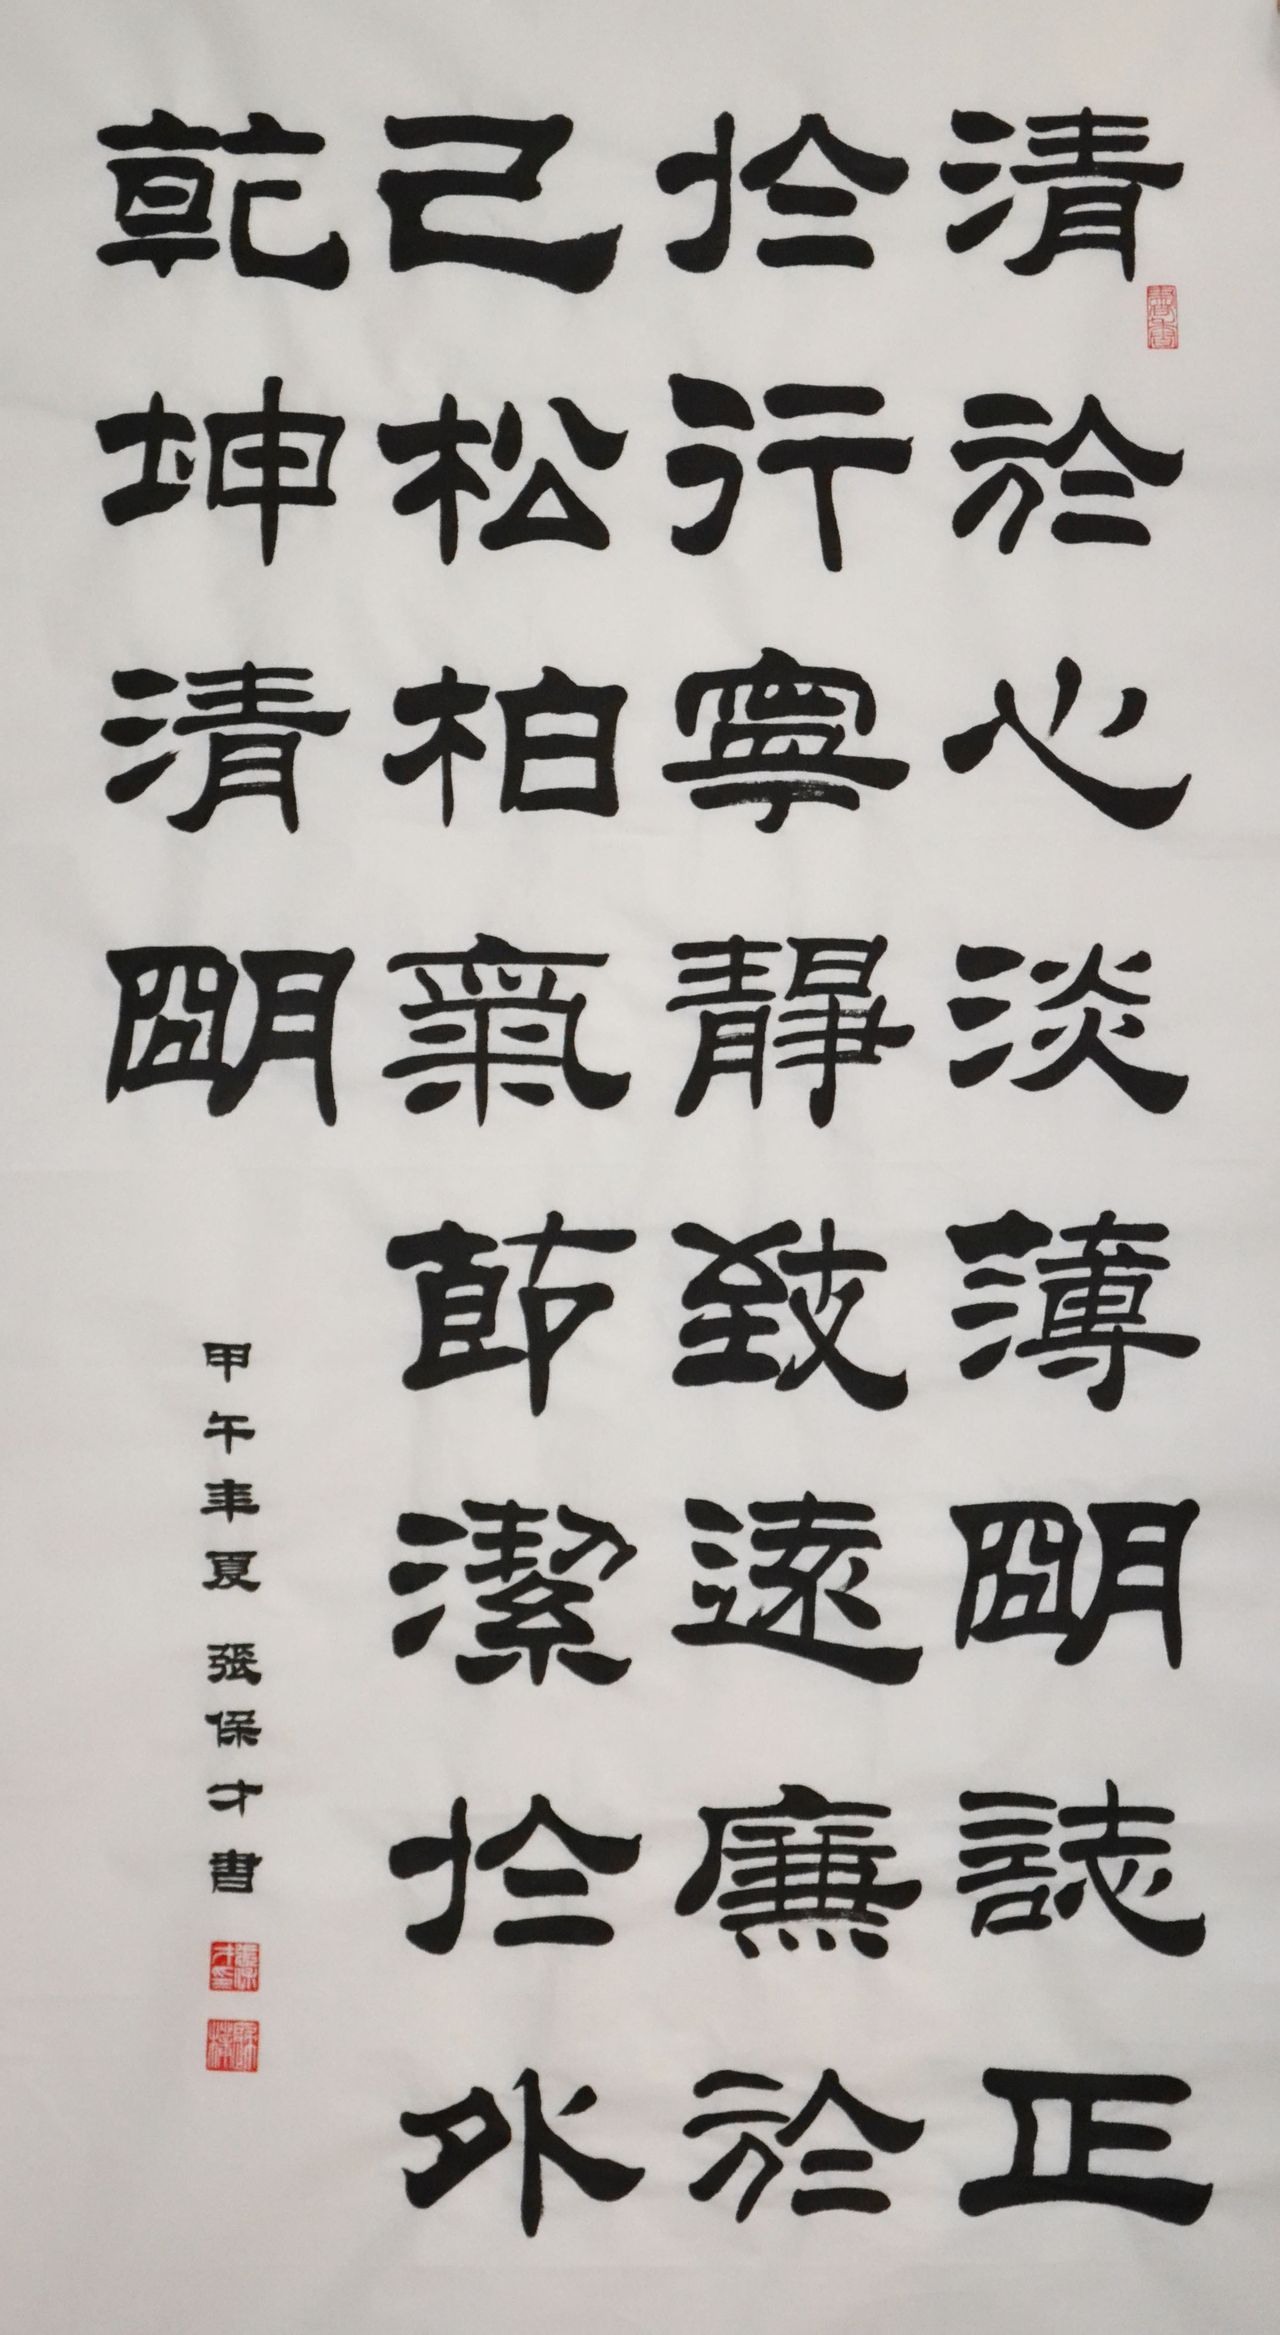 清於心淡薄明誌正
於行寧靜致遠廉於
己松柏氣節潔於外
乾坤清明
甲午年夏張保才書